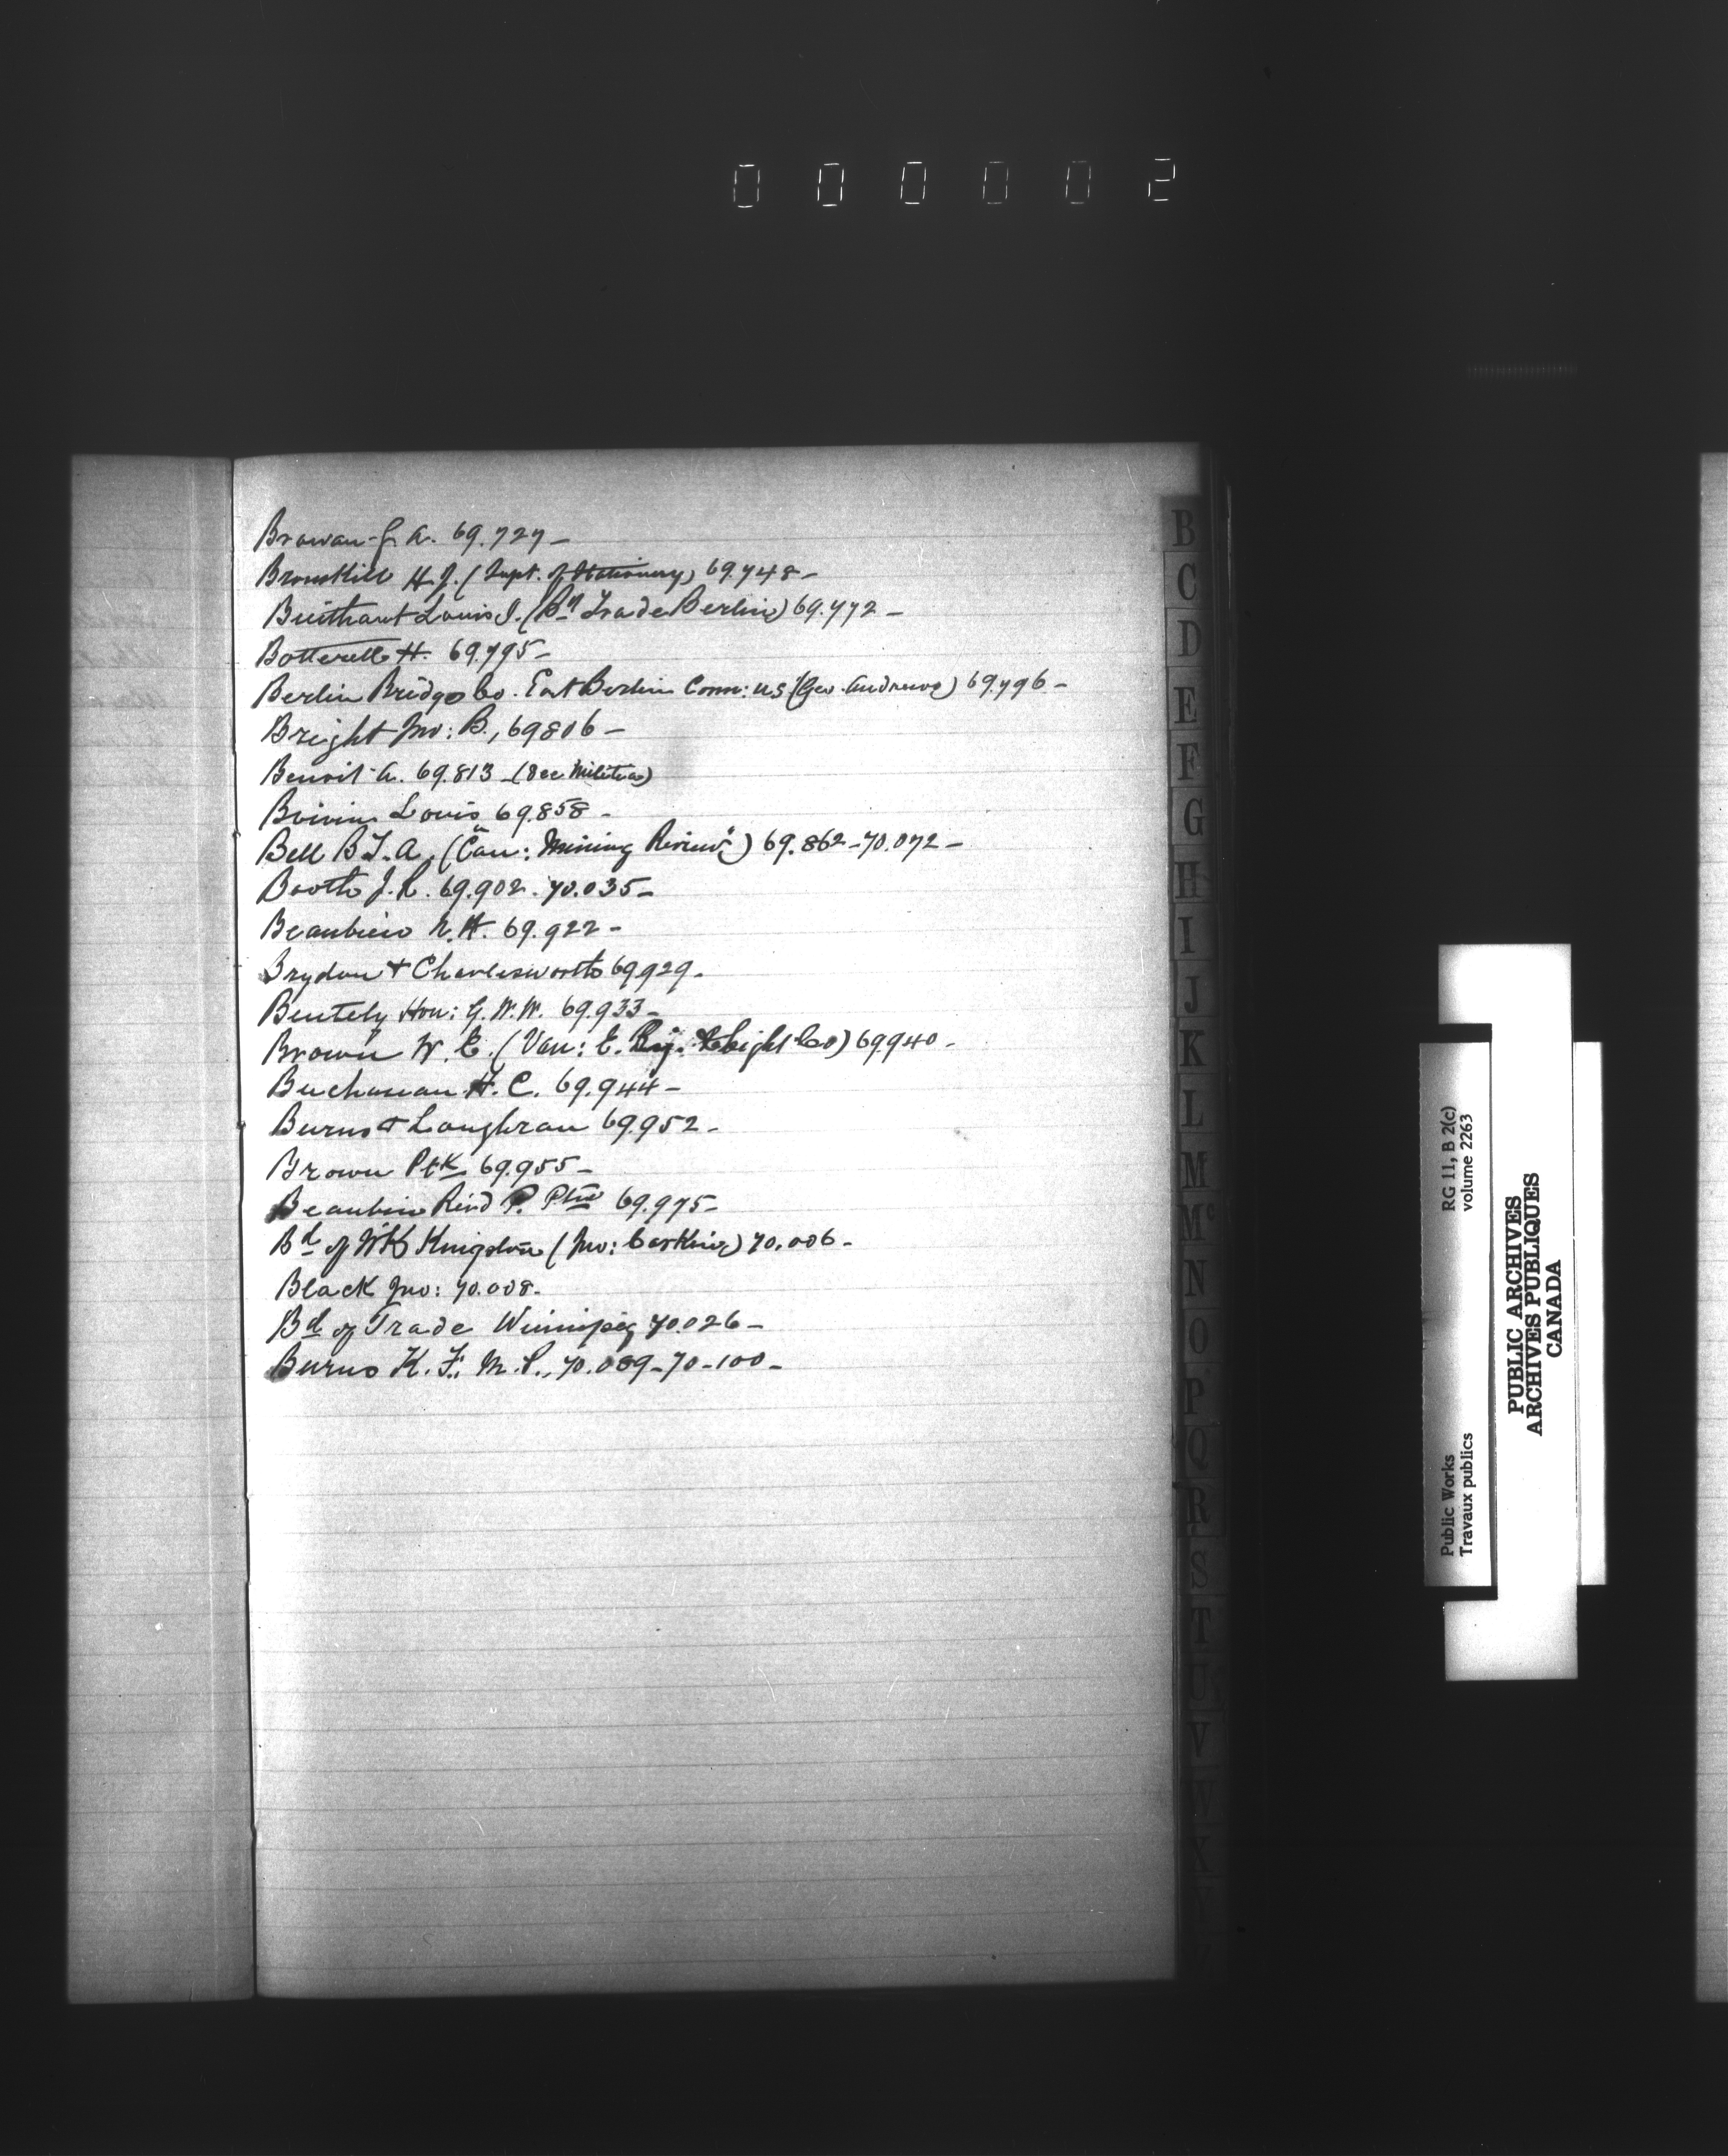 000002
Browan J. A. 69.727-
Bronskill H.J. (Supt. of Stationery) 69.748-
Louis J. (Bd Trade Berlin) 69.772-
Botterell H. 69.795-
Berlin Bridge Co. East Berlin Conn: US (Geo. Andrews) 69.796-
Bright Jno: B., 69806-
Benoit A. 69.813-(See Militia)
Boivin Louis 69.858-
Bell B.T.A. ("Can: Mining Review") 69.862-70.072-
Booth J.R. 69.902. 70.035-
Beaubien N.H. 69.922-
Brydon & Charlesworth 69.929-
Bentely Hon: G.W.W. 69.933-
Brown W. E. (Van: E. Ry. & Light Co) 69.940-
Buchanan H.C. 69.944-
Burns & Loughran 69.952-
Brown Ptk 69.955-
Beaubien Revd P. Ptre 69.975-
Bd of Wks Kingston (Jno: Carkin) 70.006-
Black Jno: 70.008-
Bd of Trade Winnipeg 70.026-
Burns K. F. M.P., 70.089-70-100-
B
C
D
E
F
G
H
I
J
K
L
M
Mc
N
O
P
Q
R
S
T
U
V
W
X
Y
Public Works
Travaux publics
RG 11, B 2(c)
volume 2263
PUBLIC ARCHIVES
ARCHIVES PUBLIQUES
CANADA